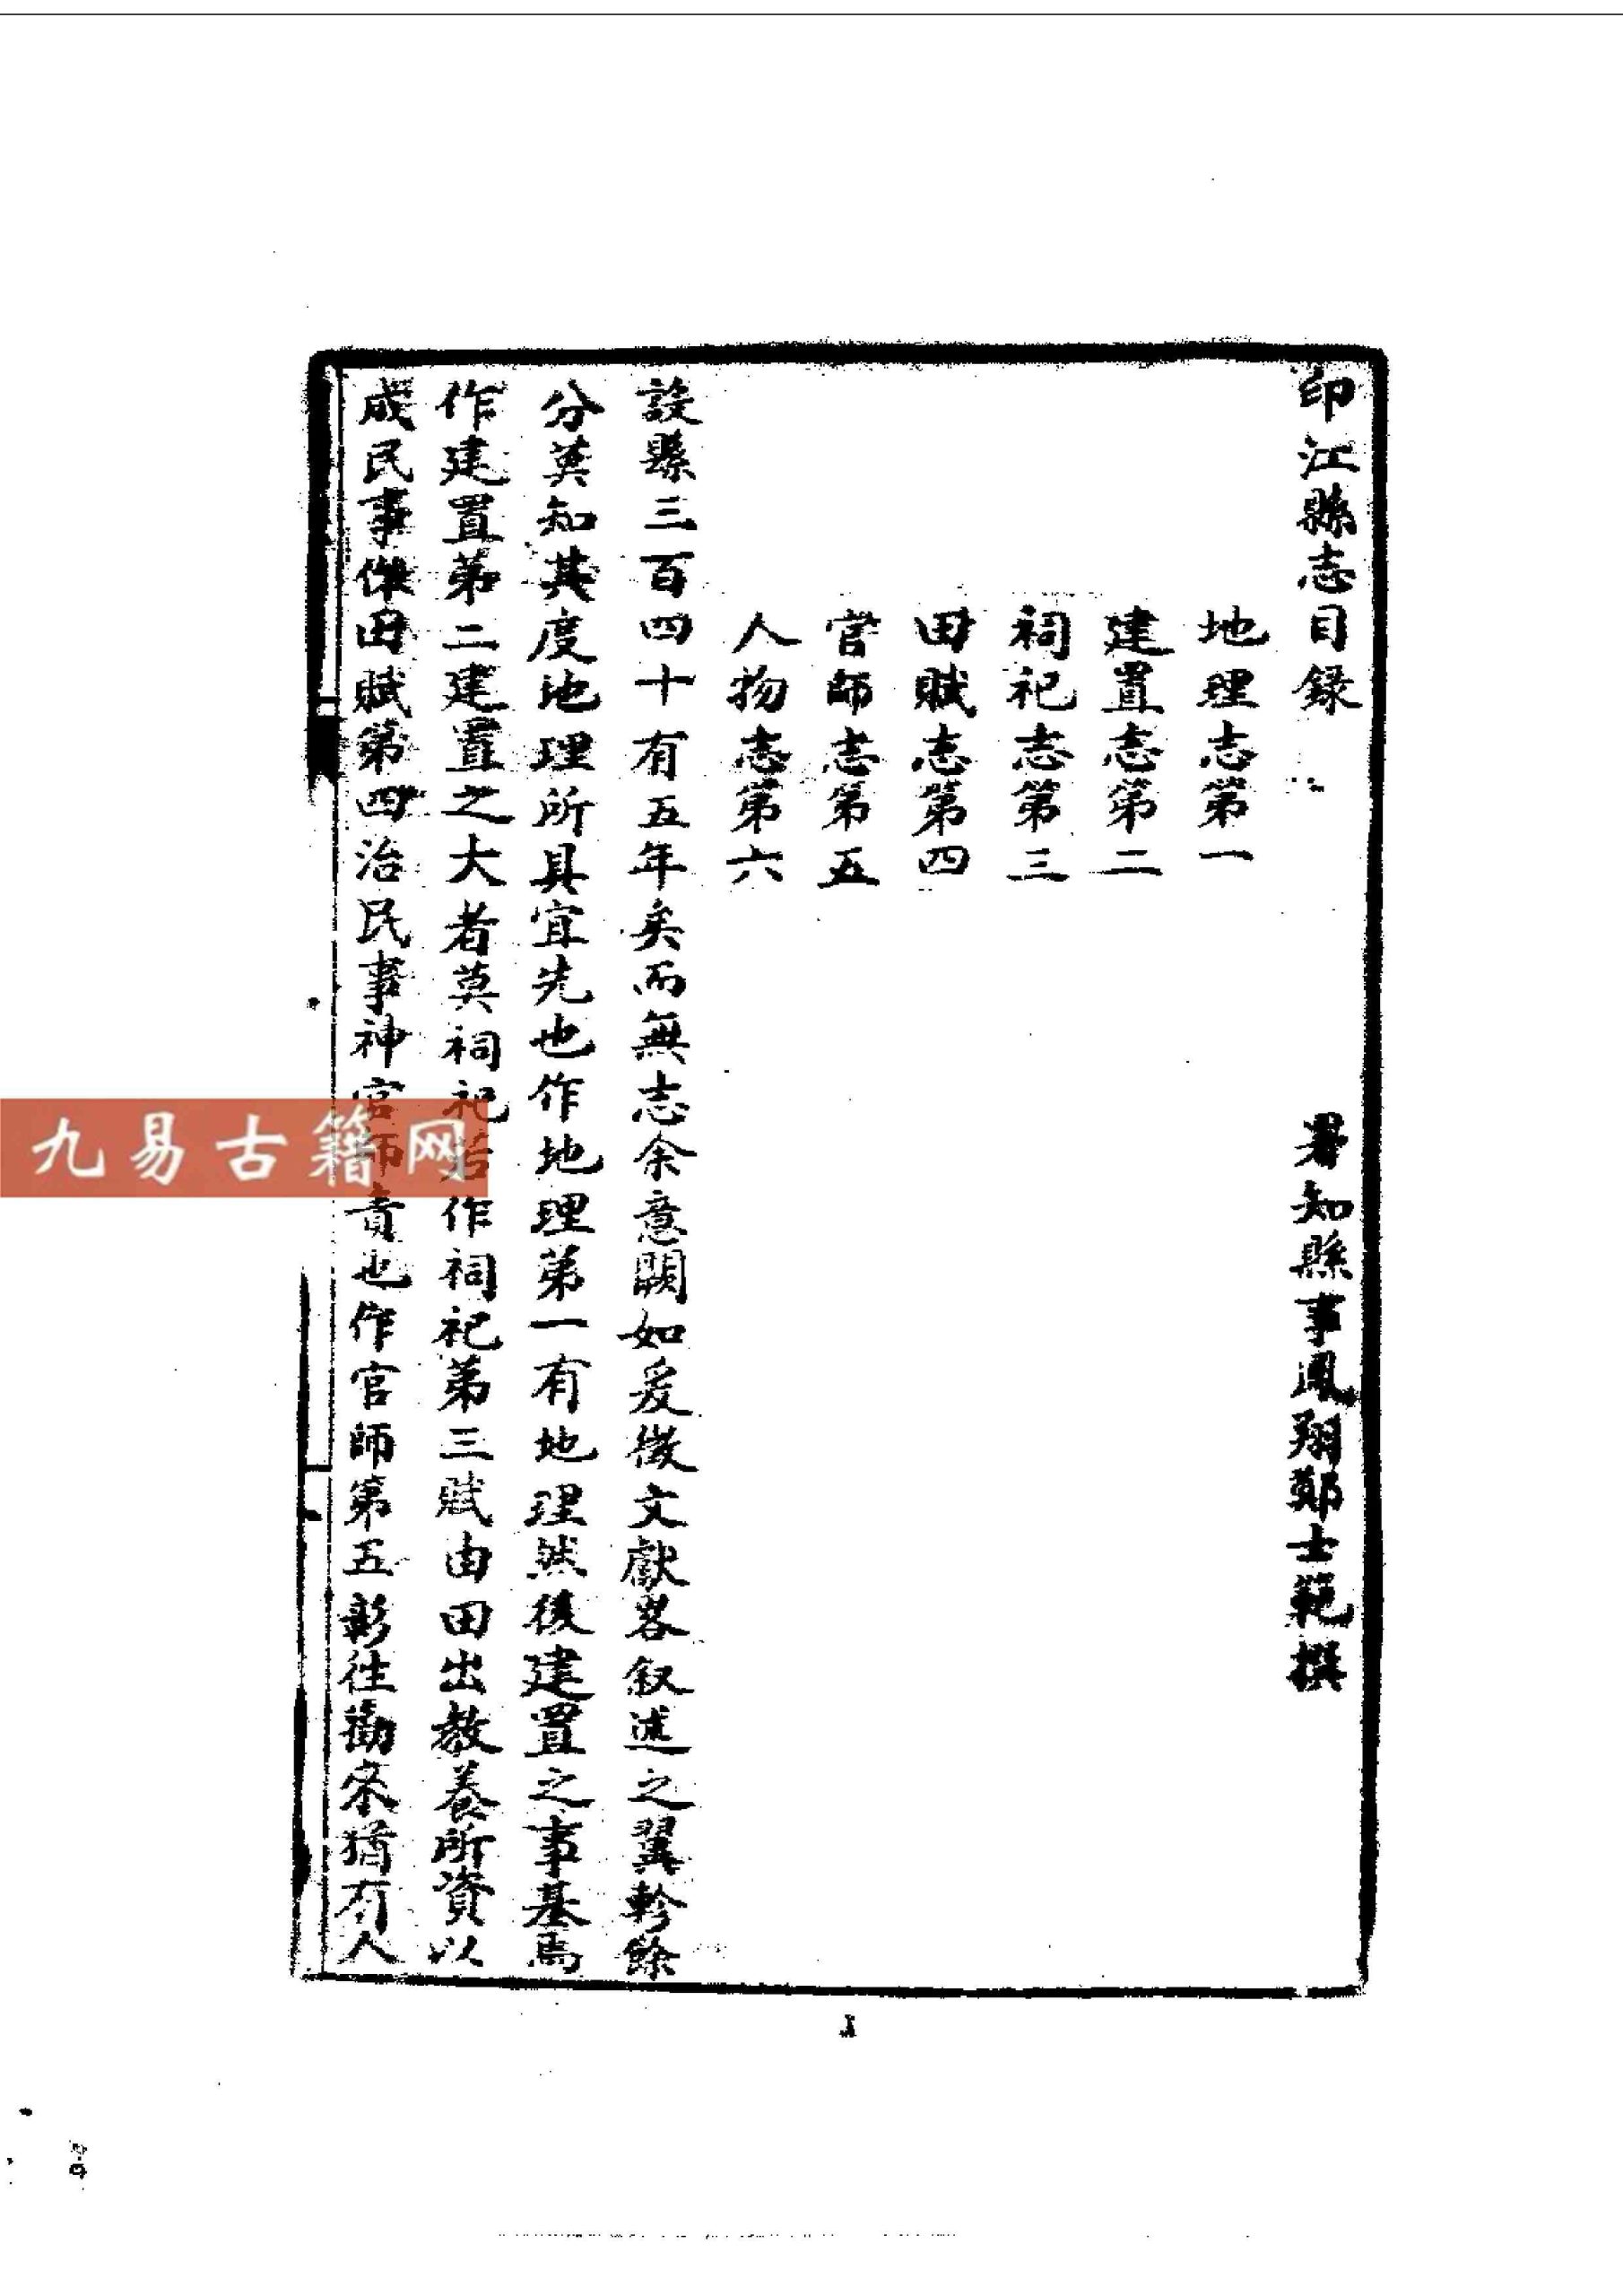 印江縣志目録
署知縣事鳳翔鄭士範撰
地理志第一
建置志第二
祠祀志第三
田賦志第四
官師志第五
人物志第六
設縣三百四十有五年矣而無志余意闕如爰徵文獻畧叙述之翼軫餘
分莫知其度地理所具宜先也作地理第一有地理然後建置之事基焉
作建置第二建置之大者莫祠祀若作祠祀第三賦由田出教養所資以
成民事作田賦第四治民事神官師責也作官師第五彰往勸來猶有人
九易古籍网